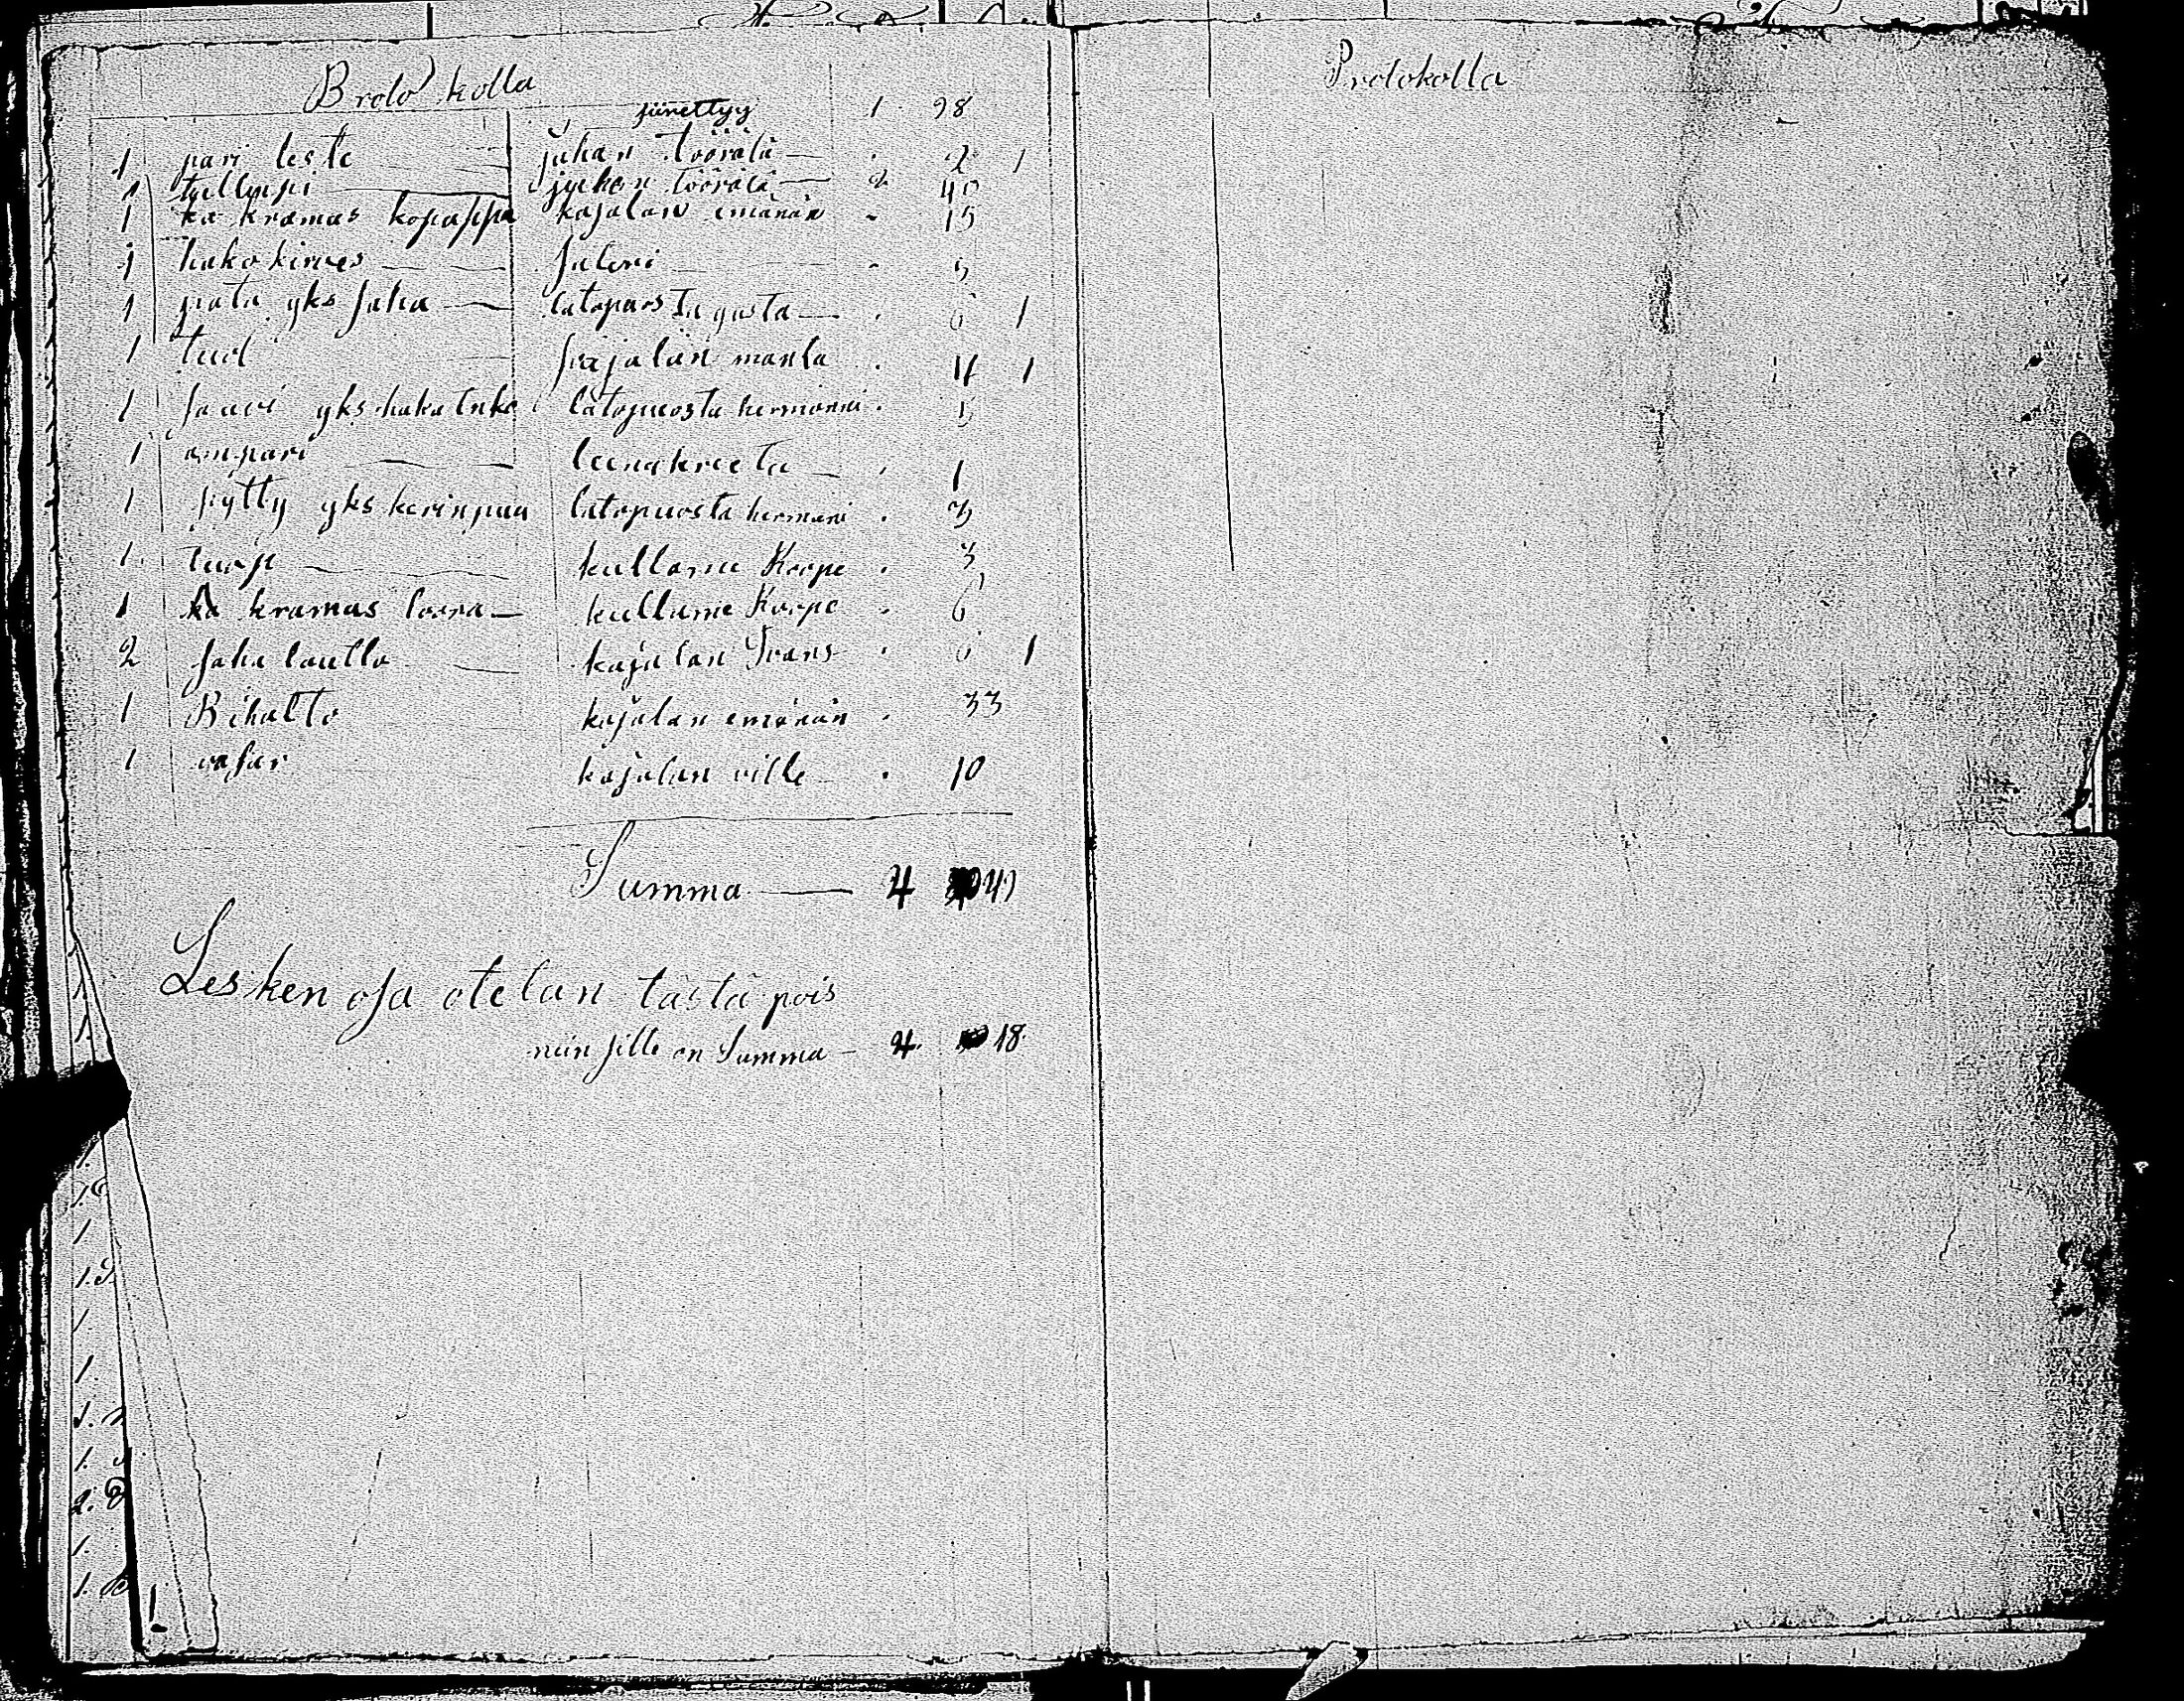 Broto kolla
siirettyy 1 98
1 pari leste juhan töörälä . 2 1
1 juhan töörälä 2 40
1 ka kramas kopappa kajalan emänän - 15
1 hako kirves Saleri - 5
1 pata yks saha latopuosta gusta . 6 1
1 tuol pajalan manta . 4 1
1 saavi yks latopuosta hermanni . 5
1 ampari leenakreeta . 1
1 pytty yks kerinpuu latopuosta hermanni . 3
1 kullame Koope . 3
1 ka kramas kullame Koope . 6
2 saha lautto kajalan Frans . 6 1
1 Bihalto kajalan emänän . 33
1 vasar kajalan ville . 10
Summa 4 49
Lesken osa otetan tästä pois
niin sille on Summa 4. 18.
Protokolla